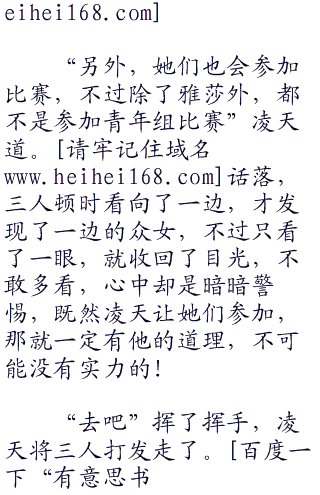 eihei168.com]
“另外，她们也会参加
比赛，不过除了雅莎外，都
不是参加青年组比赛”凌天
道。[请牢记住域名
www.heihei168.com]话落，
三人顿时看向了一边，才发
现了一边的众女，不过只看
了一眼，就收回了目光，不
敢多看，心中却是暗暗警
惕，既然凌天让她们参加，
那就一定有他的道理，不可
能没有实力的!
“去吧”挥了挥手，凌
天将三人打发走了。[百度一
下“有意思书